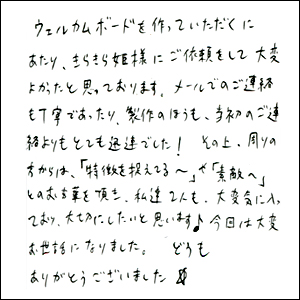 ウェルカムボードを作っていただくに
あたり、きらきら姫様にご依頼をして大変
よかったと思っております。メールでのご連絡
も丁寧であったり、製作のほうも、当初のご連
絡よりもとても迅速でした！ その上、周りの
方からは、「特徴を捉えてる〜」や「素敵へ」
とのお言葉を頂き、私達2人も、大変気に入っ
ており、大切にしたいと思います♪今回は大変
お世話になりました。 どうも
ありがとうございました